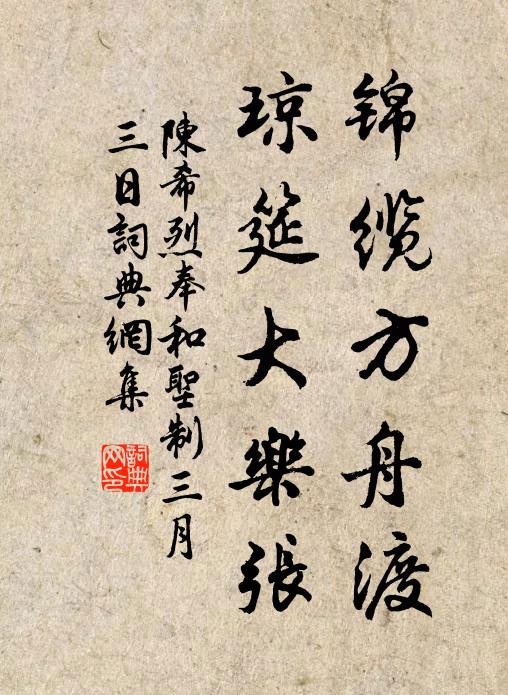 锦缆方舟渡
琼筵大樂張
陳希烈奉和聖制三月
三日詞典網集
詞典网印